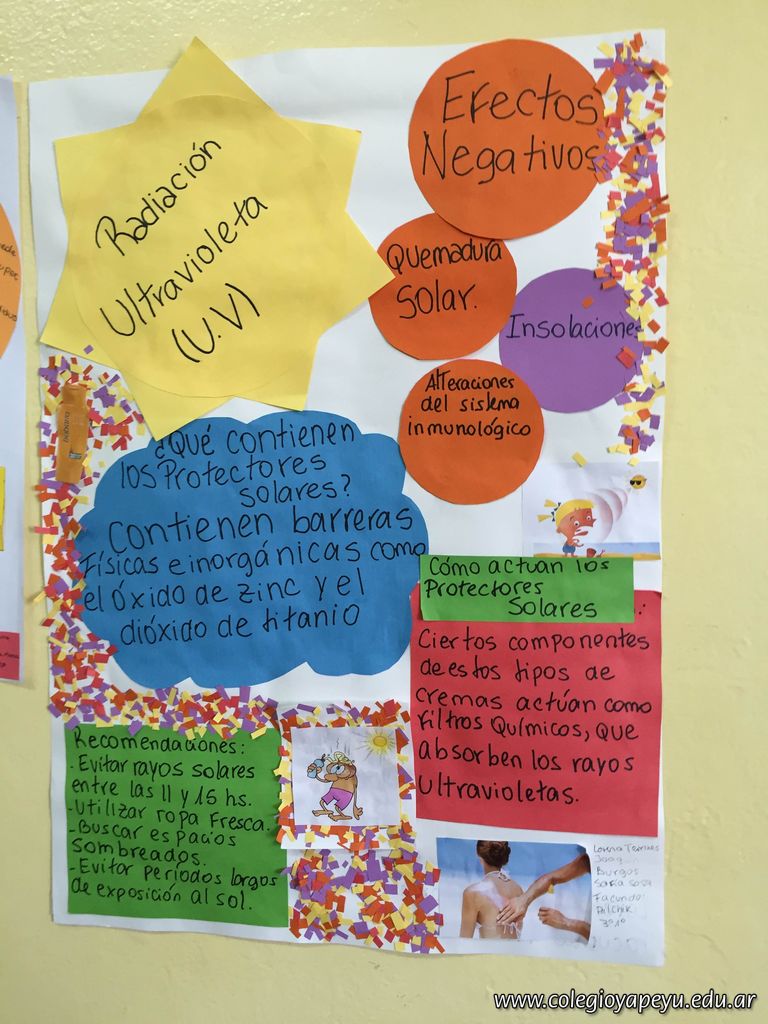 Radiación
Ultravioleta
(U.V)
Efectos
Negativos
Quemadura
solar.
Insolaciones
Alteraciones
del sistema
inmunológico
¿Qué contienen
los Protectores
solares?
Contienen barreras
Físicas e inorgánicas como
el óxido de zinc y el
dióxido de titanio
Cómo actúan los
Protectores
Solares
Ciertos componentes
de estos tipos de
cremas actúan como
Filtros Químicos, que
absorben los rayos
Ultravioletas.
Recomendaciones:
- Evitar rayos solares
entre las 11 y 15 hs.
- Utilizar ropa Fresca.
- Buscar espacios
sombreados.
- Evitar períodos largos
de exposición al sol.
Lorena
Burgos
Sofia Sosa
Facundo
Pilchik
3º1º
www.colegioyapeyu.edu.ar